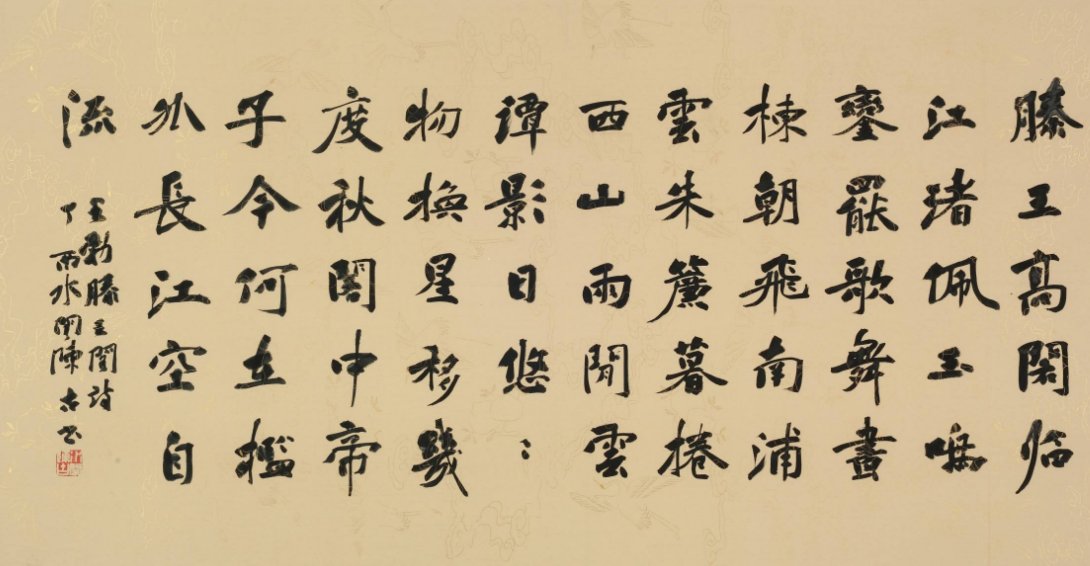 滕王高閣临
江堵佩玉鳴
鑾罷歌舞畫
棟朝飛南浦
雲朱簾暮捲
西山雨閒雲
潭影日悠〻
物換星移幾
度秋閣中帝
子今何在檻
外長江空自
流
王勃滕王閣詩
丁 雨水開陳 书